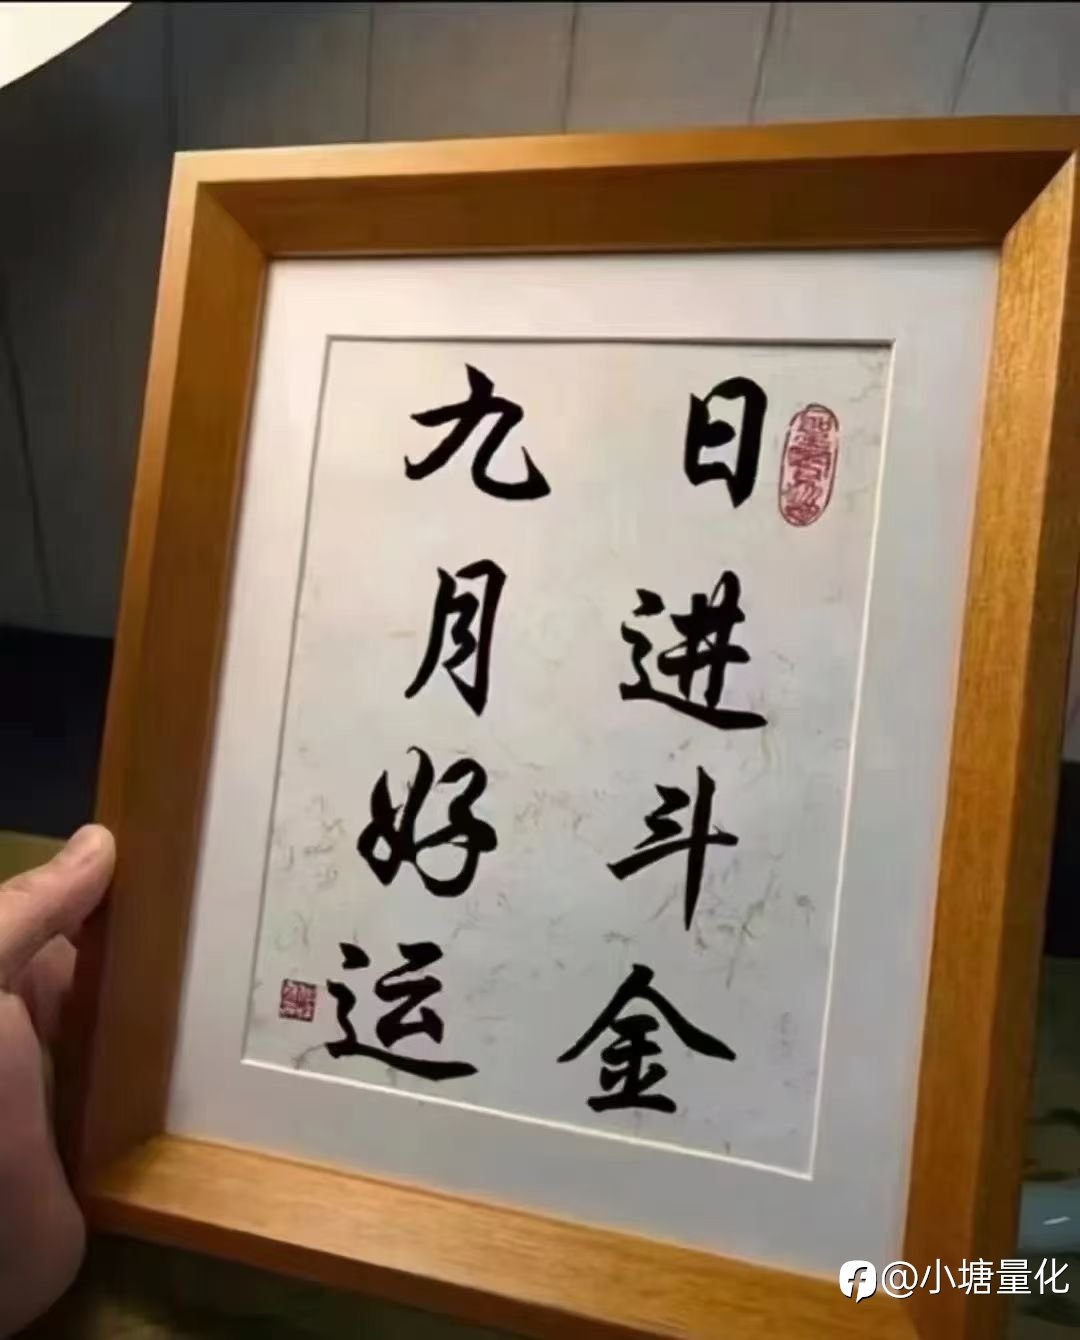 日进斗金
九月好运
@小塘量化